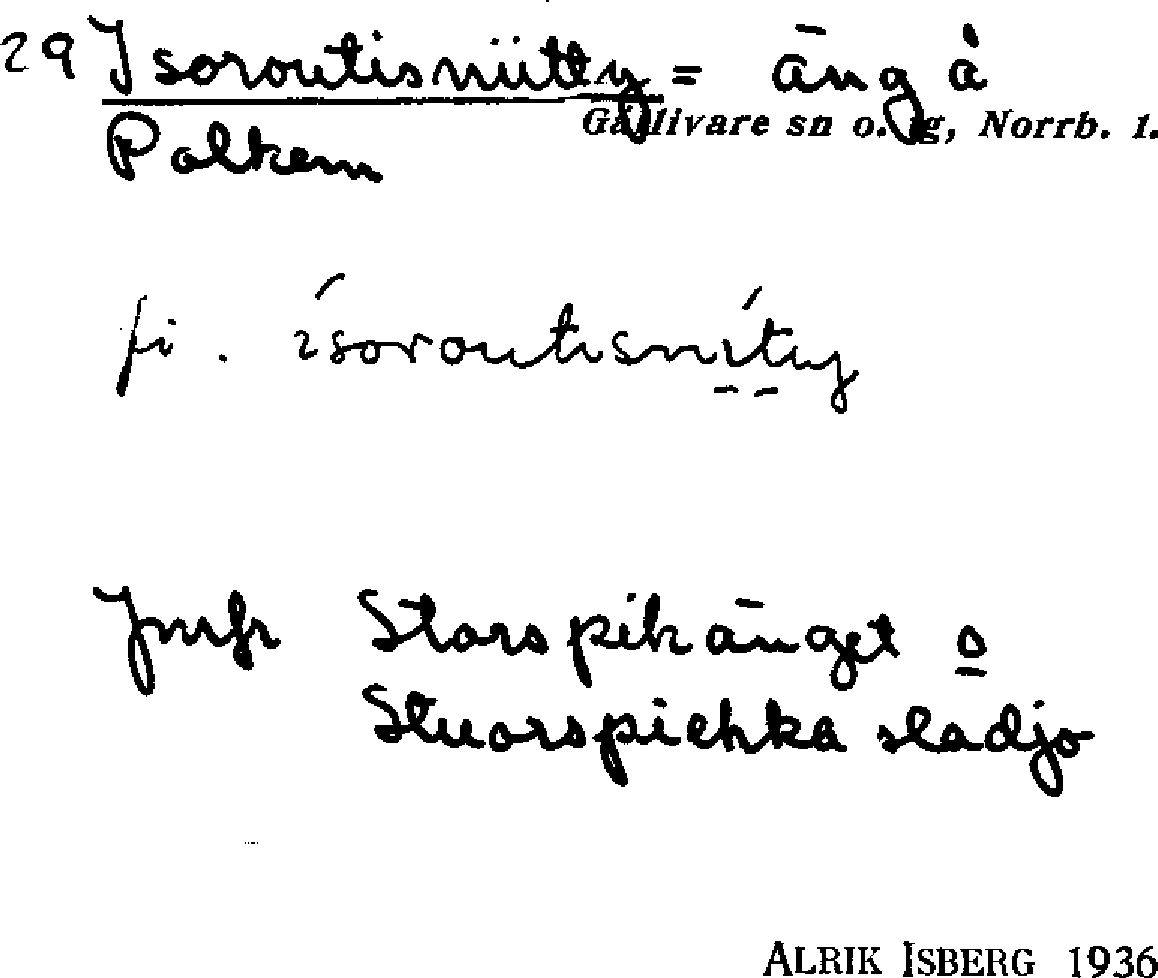 29 Isoroutisniitty = äng å
Gällivare sn o. tg, Norrb. l.
Polkem
fi. ísoroutisníty
Jmfr Storspikänget o
Stuorspiehka sladjo
ALRIK ISBERG 1936